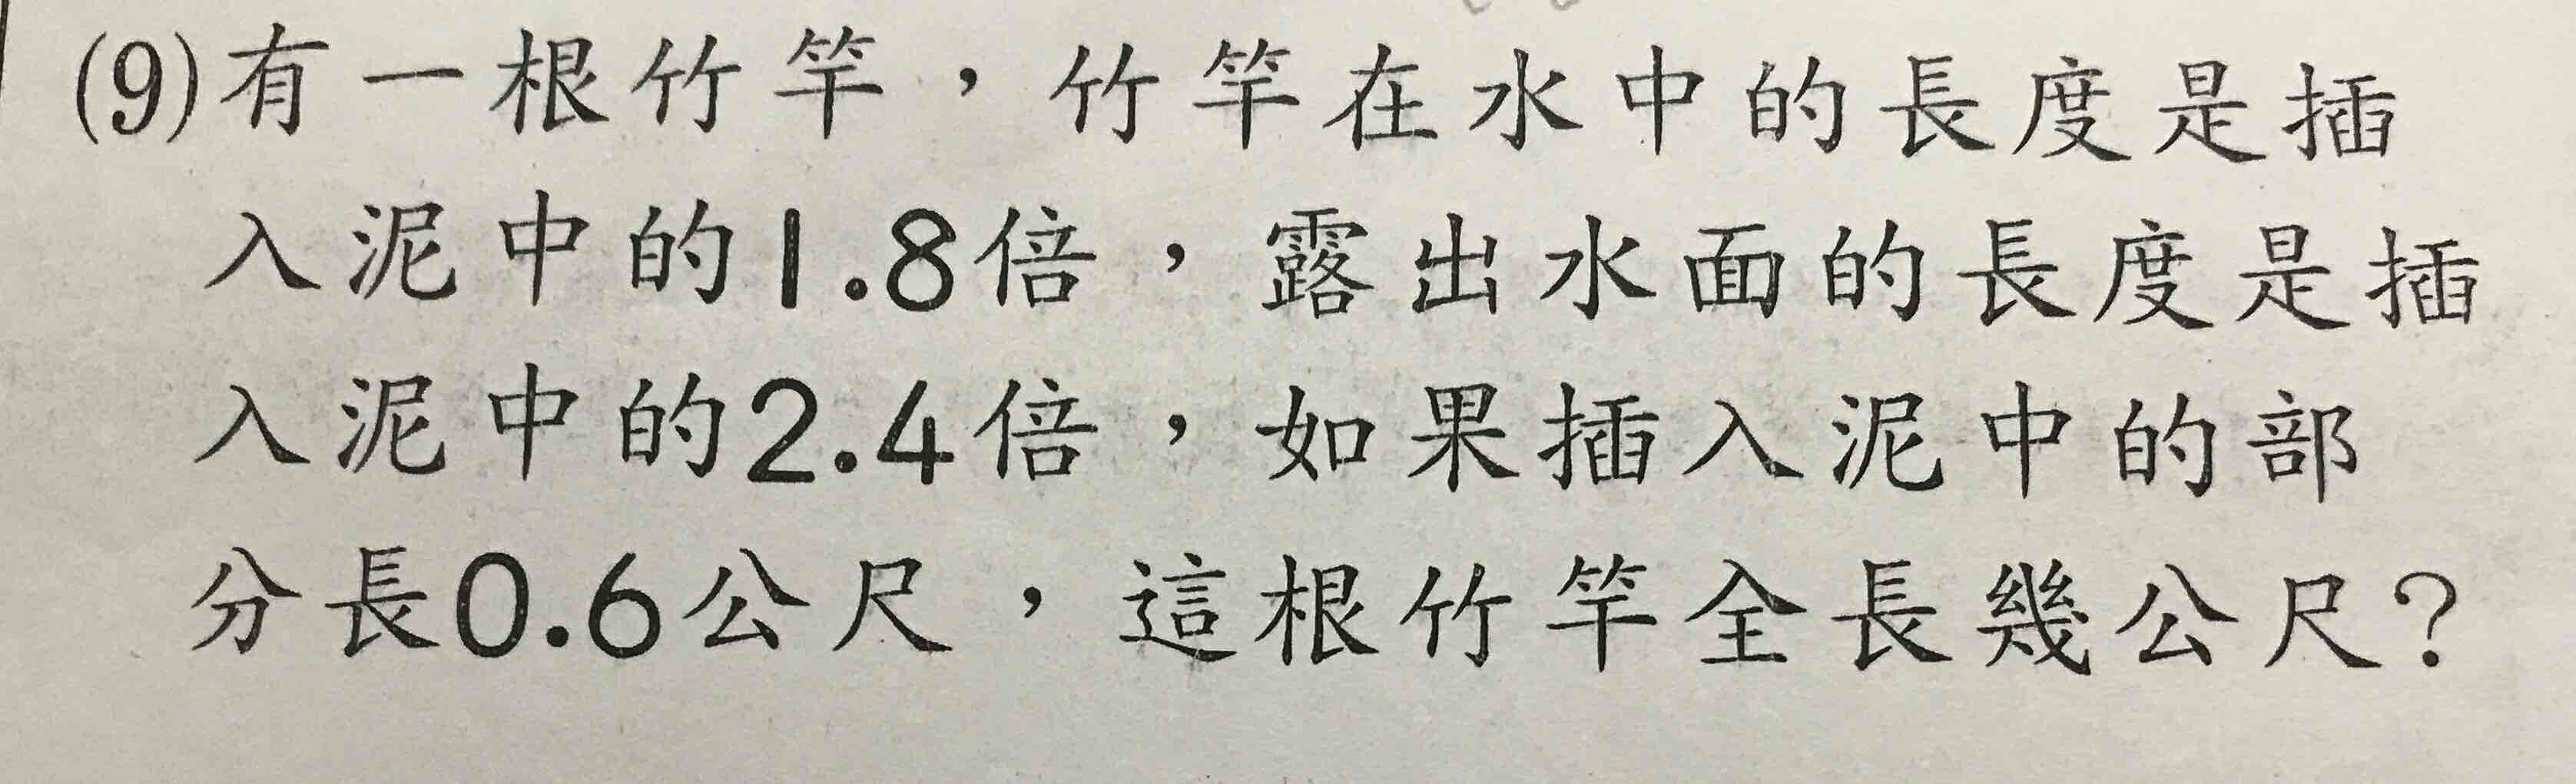 (9)有一根竹竿，竹竿在水中的長度是插
入泥中的1.8倍，露出水面的長度是插
入泥中的2.4倍，如果插入泥中的部
分長0.6公尺，這根竹竿全長幾公尺？